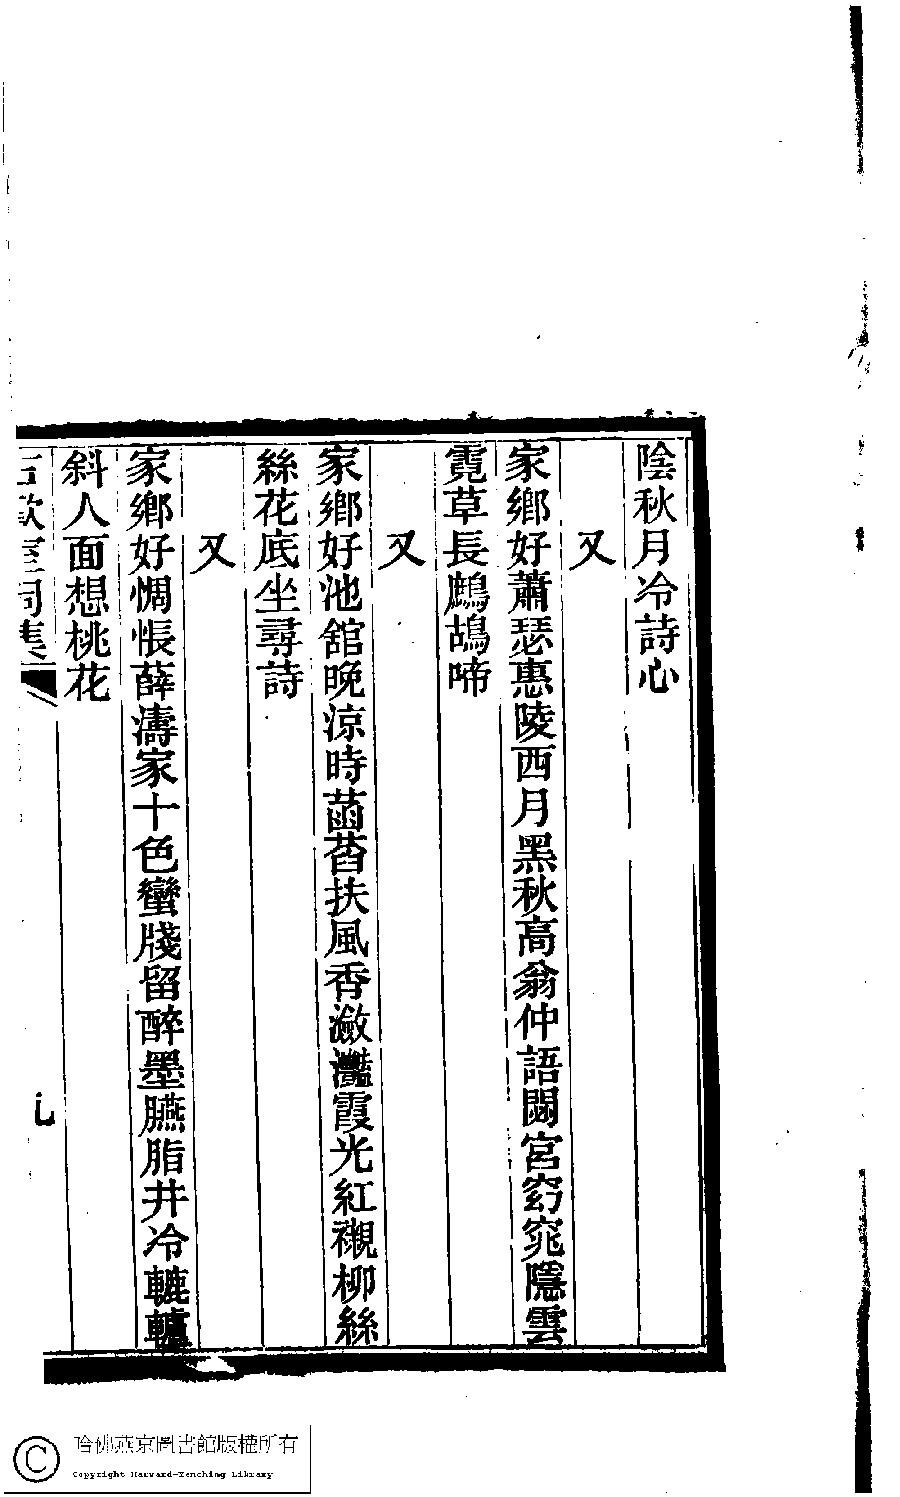 陰秋月冷詩心
又
家鄉好蕭瑟惠陵西月黑秋高翁仲語閟宮窈窕隱雲
霓草長鷓鴣啼
又
家鄉好池舘晚涼時菡萏扶風香瀲灩霞光紅襯柳絲
絲花底坐尋詩
又
家鄉好惆悵薛濤家十色蠻牋留醉墨臙脂井冷轆轤
斜人面想桃花
哈佛燕京圖書館版權所有
Copyright Harvard-Yenching Library